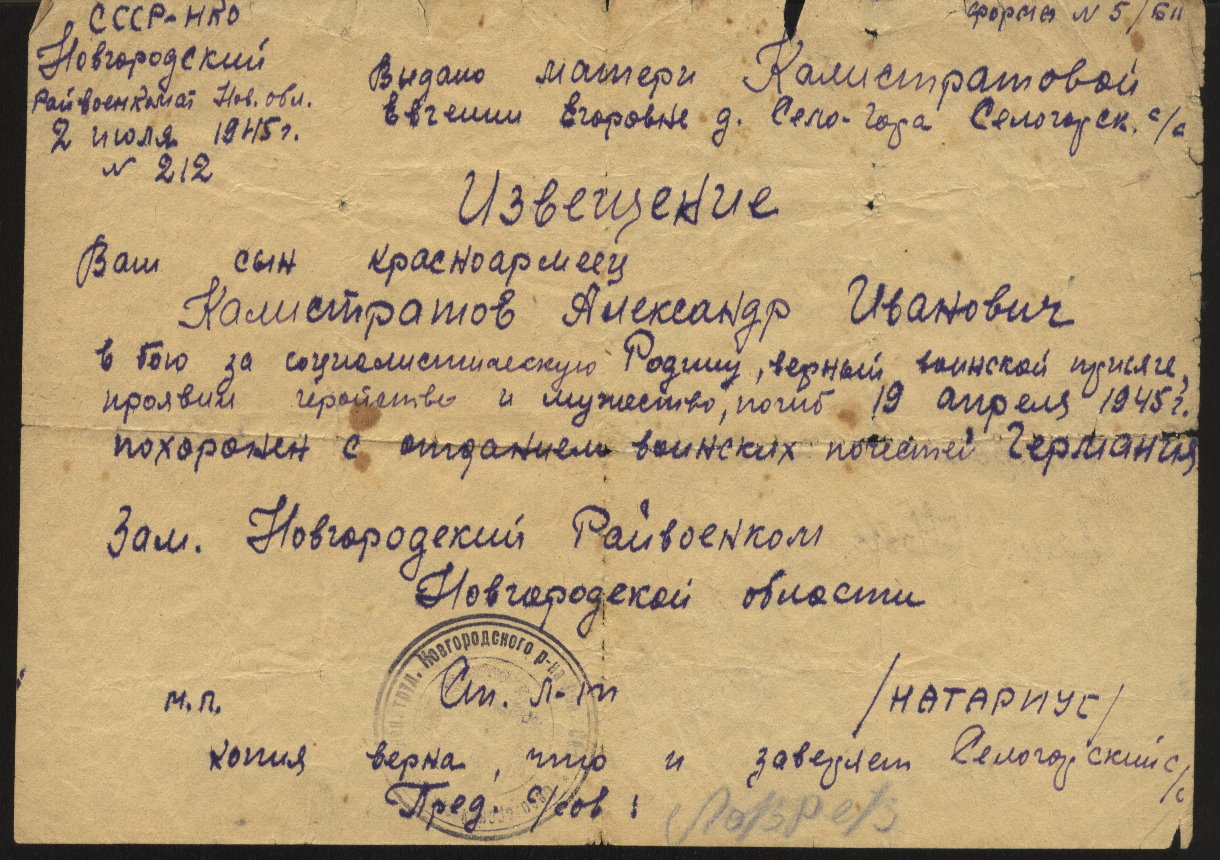 СССР-НКО
Новгородский
Райвоенкомат Нов. обл.
2 июля 1945г.
N 212
форма N 5/БП
Выдано матери Калистратовой
Евгении Егоровне д. Село-Гора Селогорск. с/с
Извещение
Ваш сын красноармеец
Калистратов Александр Иванович
в бою за социалистическую Родину, верный воинской присяге,
проявив геройство и мужество, погиб 19 апреля 1945г.
похоронен с отданием воинских почестей Германия
Зам. Новгородский Райвоенком
Новгородской области
Новгородского р-на
м.п. Ст. л-т /НАТАРИУС/
копия верна, что и заверяет Селогорский с/с
Пред. с/сов: